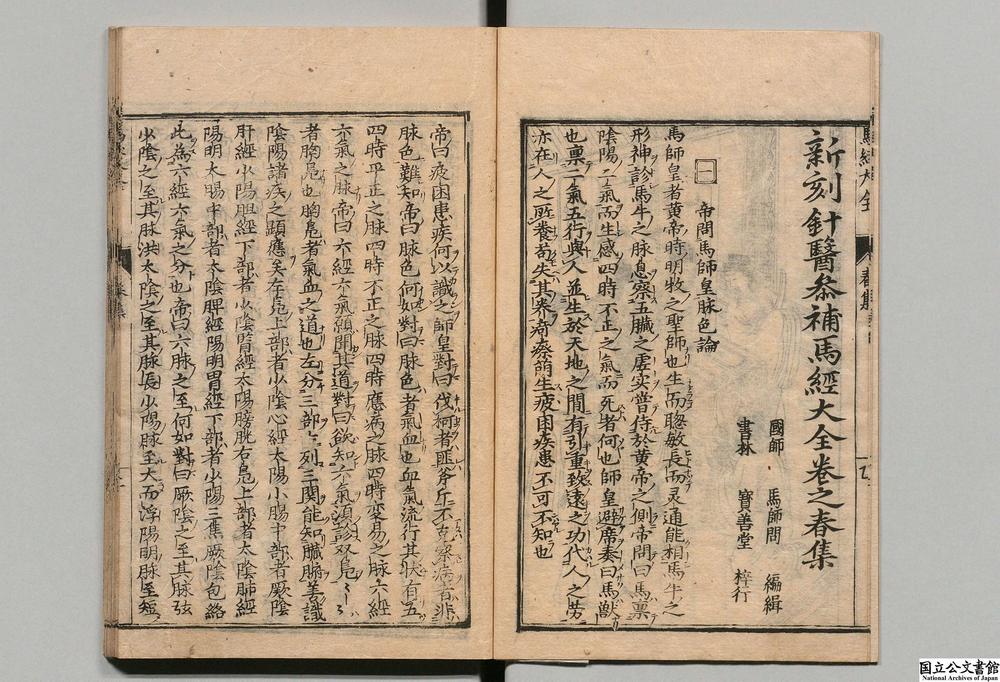 新刻針醫參補馬經大全卷之春集
國師 馬師問 編緝
書林 寶善堂 梓行
一 帝問馬師皇脉色論
馬師皇者黄帝時明牧之聖師也生而聡敏長而灵通能相馬牛之
形神診馬牛之脉息察五臓之虚实嘗侍於黄帝之側帝問曰馬禀
陰陽二氣而生感四時不正之氣而死者何也師皇避席奏曰馬獣
也禀二氣五行與人並生於天地之間有引重致遠之功代人之劳
亦在人之所養苟失其養 瘵萌生疲困疾患不可不知也
帝曰疲困患疾何以識之師皇對曰伐柯者匪斧斤不克察病者非
脉色難知帝曰脉色何如對曰脉色者氣血也血氣流行其状有五
四時平正之脉四時不正之脉四時應病之脉四時変易之脉六經
六氣之脉帝曰六經六氣願聞其道對曰欲知六氣須診双凫〻〻
者胸凫也胸凫者氣血之道也左分三部右列三関能知臓腑善識
陰陽諸疾之顕應矣左凫上部者少陰心經太陽小腸中部者厥陰
肝經少陽胆經下部者少陰腎經太陽膀胱右凫上部者太陰肺經
陽明大腸中部者太陰脾經陽明胃經下部者少陽三焦厥陰包絡
此為六經六氣之分也帝曰六脉之至何如對曰厥陰之至其脉弦
少陰之至其脉洪太陰之至其脉長少陽脉至大而浮陽明脉至短
馬經大全
春集
国立公文書館
National Archives of Japan